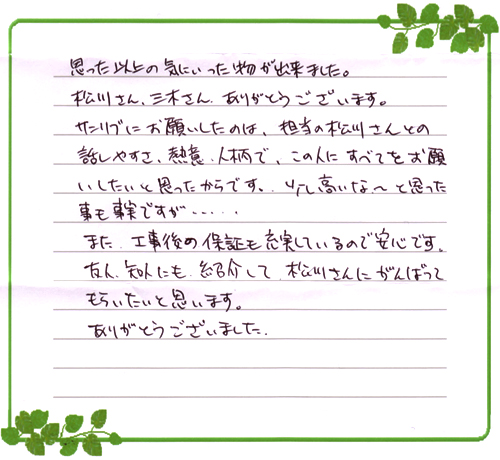 思った以上の気にいった物が出来ました。
松川さん、三木さん ありがとうございます。
サンリブにお願いしたのは、担当の松川さんとの
話しやすさ、熱意、人柄で、この人にすべてをお願
いしたいと思ったからです。少し高いな〜と思った
事も事実ですが・・・・・
また、工事後の保証も充実しているので安心です。
友人、知人にも、紹介して、松川さんにがんばって
もらいたいと思います。
ありがとうございました。